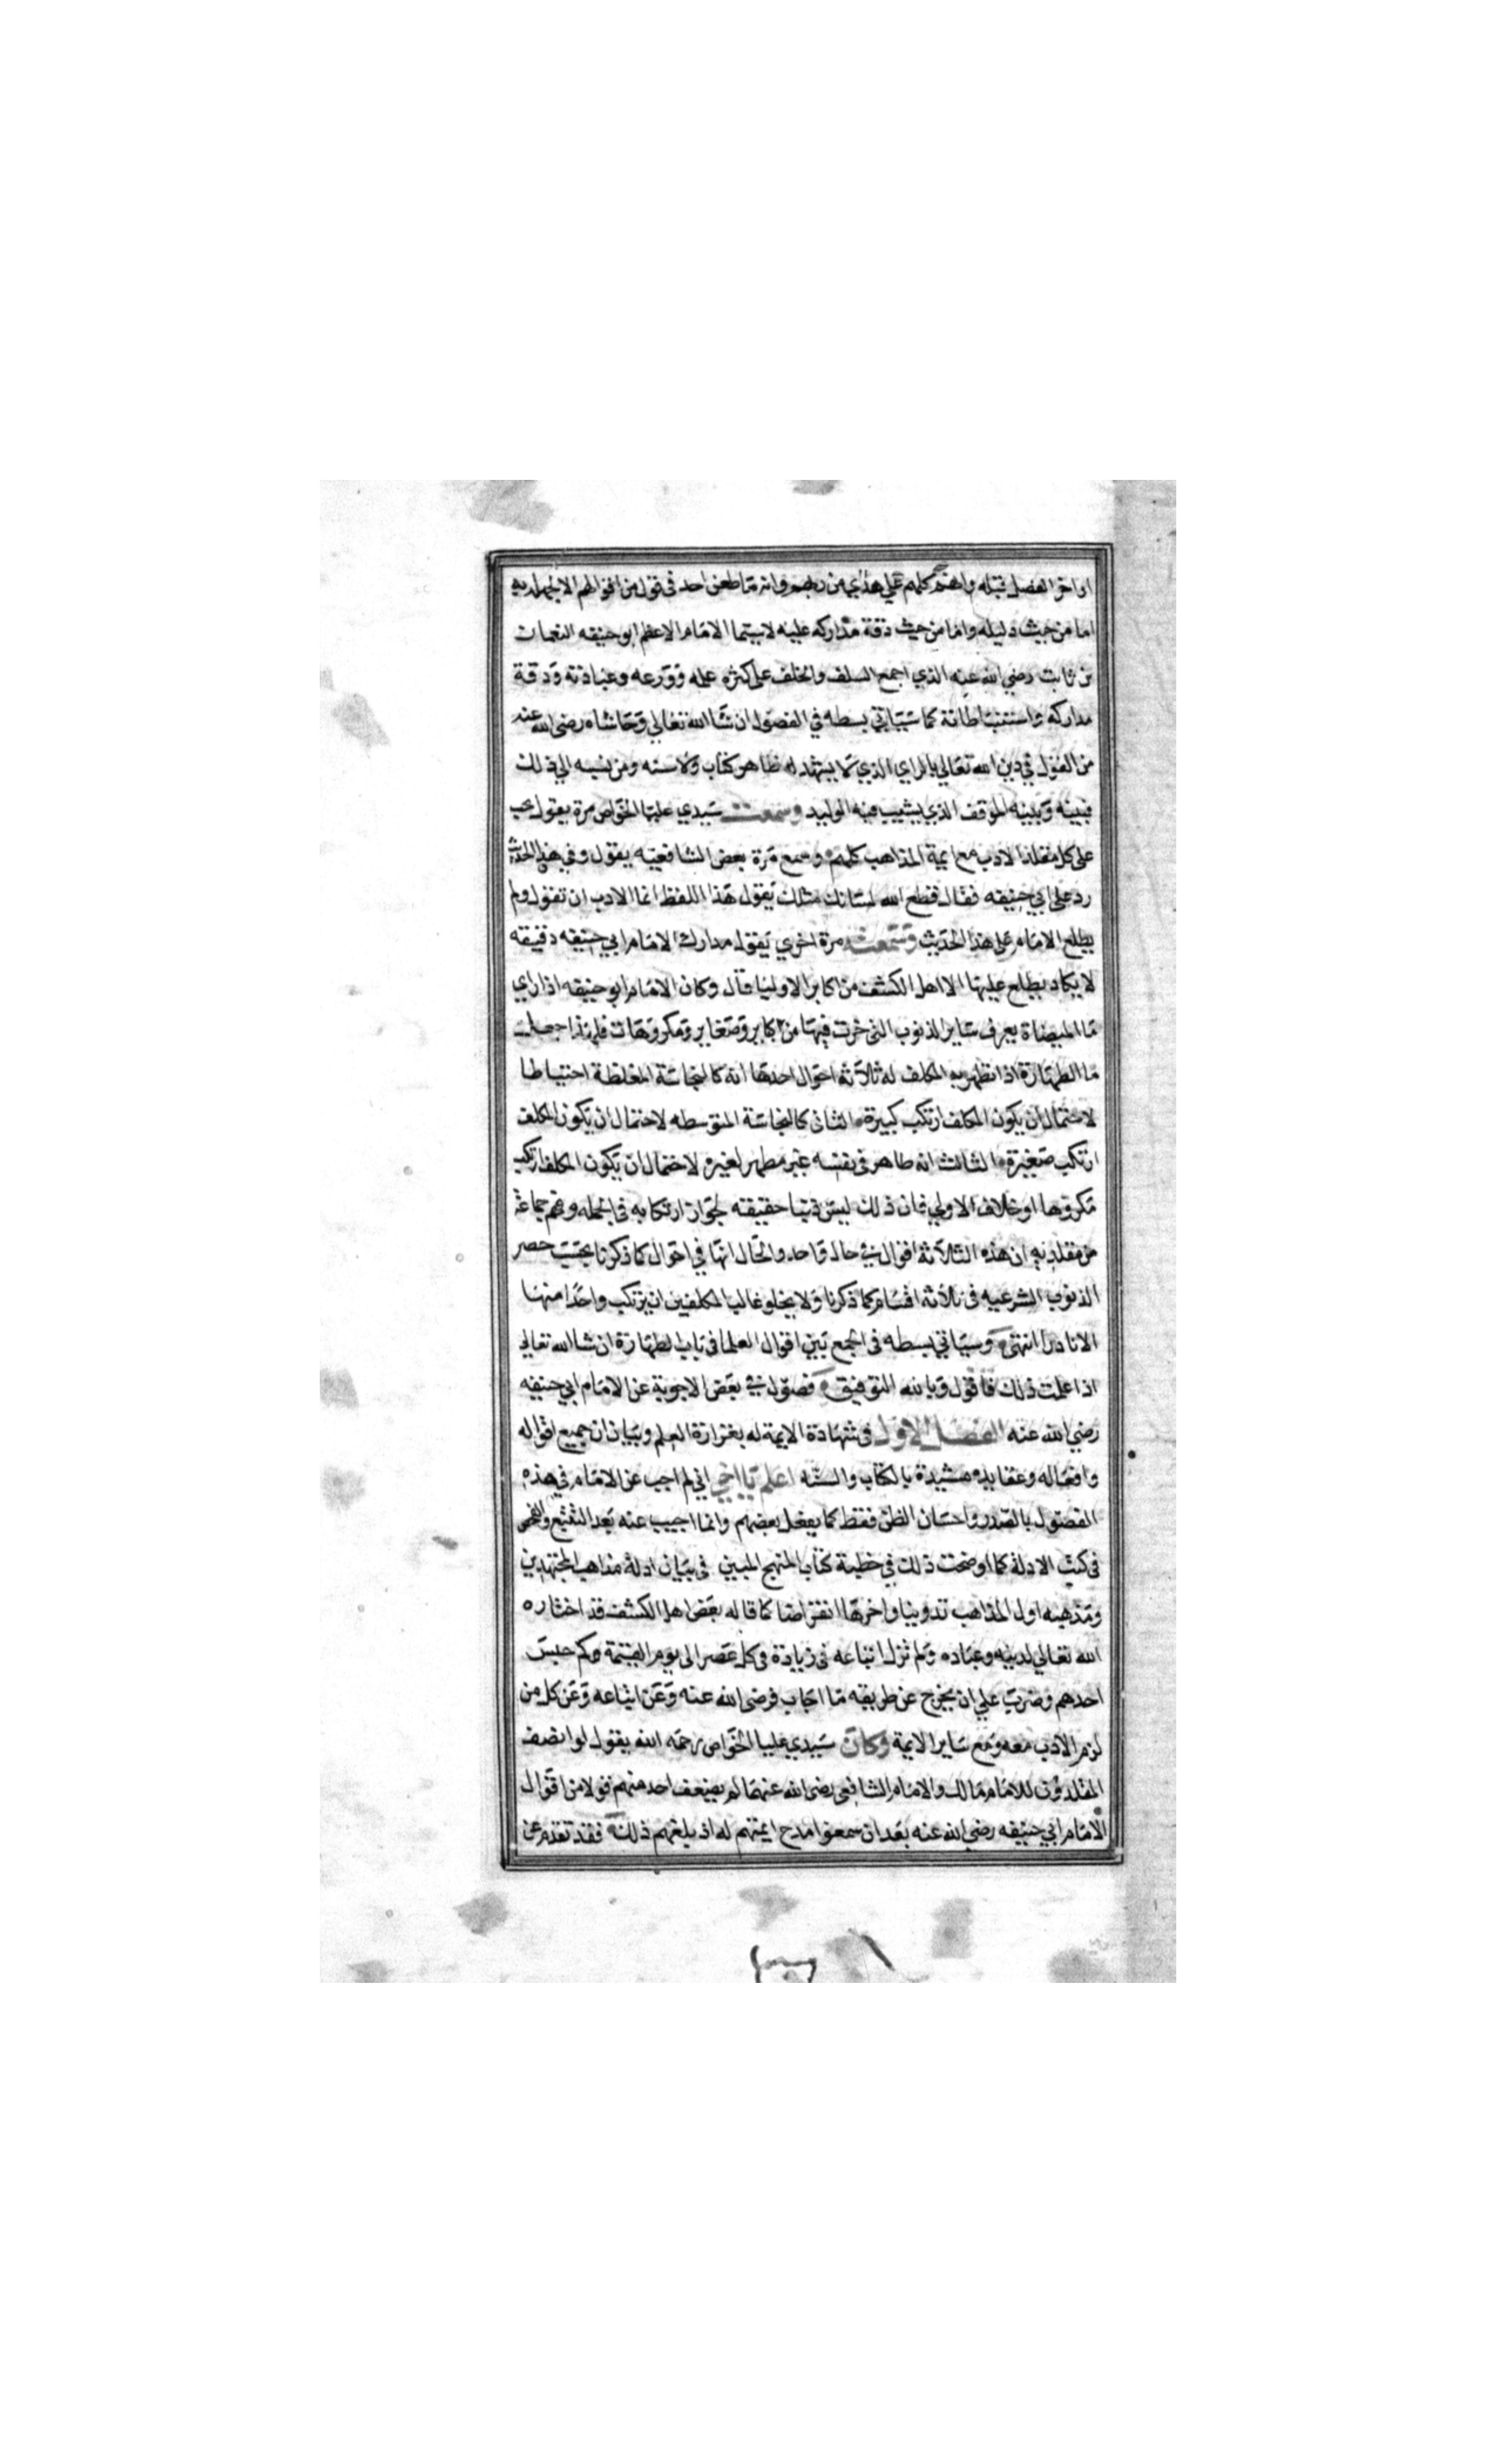 اواخر الفصل قبله وانهم كلهم علي هدي من ربهم وانه ما طعن احد في قول من اقوالهم الا لجهله به
اما من حيث دليله واما من حيث دقة مداركه عليه لاسيما الامام الاعظم ابو حنيفه النعمان
بن ثابت رضي الله عنه الذي اجمع السلف والخلف على كثرة علمه وورعه وعبادته ودقة
مداركه واستنباطاته كما سياتي بسطه في الفصول ان شا الله تعالي وحاشاه رضي الله عنه
من القول في دين الله تعالي بالراي الذي لا يشهد له ظاهر كتاب ولا سنه ومن نسبه الي ذلك
فبينه وبينه الموقف الذي يشيب فيه الوليد وسمعت سيدي عليا الخواص مرة يقول يجب
على كل مقلد الادب مع ايمة المذاهب كلهم وسمع مرة بعض الشافعيه يقول وفي هذا الحديث
رد على ابي حنيفه فقال قطع الله لسانك مثلك يقول هذا اللفظ انما الادب ان تقول ولم
يطلع الامام على هذا الحديث وسمعته مرة اخري يقول مدارك الامام ابي حنيفه دقيقه
لا يكاد يطلع عليها الا اهل الكشف من اكابر الاوليا قال وكان الامام ابو حنيفه اذا راي
ما الميضاة يعرف ساير الذنوب التي خرت فيها من كباير وصغاير ومكروهات فلهذا جعل
ما الطهارة اذا تطهر به المكلف له ثلاثة احوال احدها انه كالنجاسة المغلظة احتياطا
لاحتمال ان يكون المكلف ارتكب كبيرة الثاني كالنجاسة المتوسطه لاحتمال ان يكون المكلف
ارتكب صغيرة الثالث انه طاهر في نفسه غير مطهر لغيره لاحتمال ان يكون المكلف ارتكب
مكروها او خلاف الاولي فان ذلك ليس ذنبا حقيقته لجواز ارتكابه في الجمله وفهم جماعة
من مقلديه ان هذه الثلاثة اقوال في حال واحد والحال انها في احوال كما ذكرنا بحسب حصر
الذنوب الشرعيه في ثلاثة اقسام كما ذكرنا ولا يخلو غالب المكلفين ان يرتكب واحدا منها
الا نادرا انتهى وسياتي بسطه في الجمع بين اقوال العلما في باب الطهارة ان شا الله تعالي
اذا علمت ذلك فاقول وبالله التوفيق فصول في بعض الاجوبة عن الامام ابي حنيفه
رضي الله عنه الفصل الاول في شهادة الايمة له بغزارة العلم وبيان ان جميع اقواله
وافعاله وعقايده مشيدة بالكتاب والسنه اعلم يا اخي اني لم اجب عن الامام في هذه
الفصول بالصدر واحسان الظن فقط كما يفعل بعضهم وانما اجيب عنه بعد التتبع والفحص
في كتب الادلة كما اوضحت ذلك في خطبة كتاب المنهج المبين في بيان ادلة مذاهب المجتهدين
ومذهبه اول المذاهب تدوينا واخرها انقراضا كما قاله بعض اهل الكشف قد اختاره
الله تعالي لدينه وعباده ولم تزل اتباعه في زيادة في كل عصر الى يوم القيمة وكم حبس
احدهم وضرب علي ان يخرج عن طريقه ما اجاب فرضى الله عنه وعن اتباعه وعن كل من
لزم الادب معه ومع ساير الايمة وكان سيدي عليا الخواص رحمه الله يقول لو انصف
المقلدون للامام مالك والامام الشافعي رضى الله عنهما لم يضعف احد منهم قولا من اقوال
الامام ابي حنيفه رضي الله عنه بعد ان سمعوا مدح ايمتهم له اذ بلغهم ذلك فقد تقدم عن